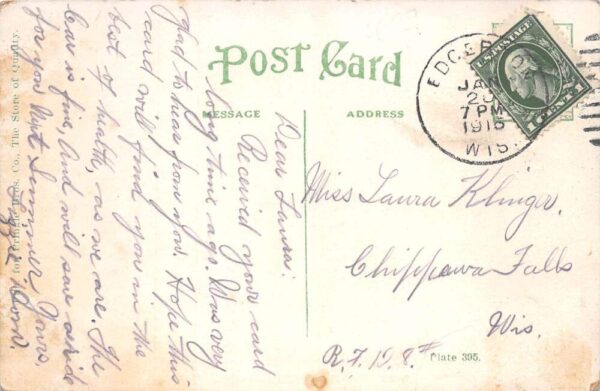 POST CARD
MESSAGE
ADDRESS
EDGER
JAN
7 PM
1915
WIS.
U.S. POSTAGE
1 CENT 1
Dear Laura:
Received your card
long time ago. Was very
glad to hear from you. Hope this
card will find you in the
best of health, as we are. The
Car is fine, And will save a ride
for you next Summer. Yours,
Miss Laura Klinger.
Chippewa Falls
Wis.
R.F.D. 8.
Plate 395.
Co., The Store of Quality.